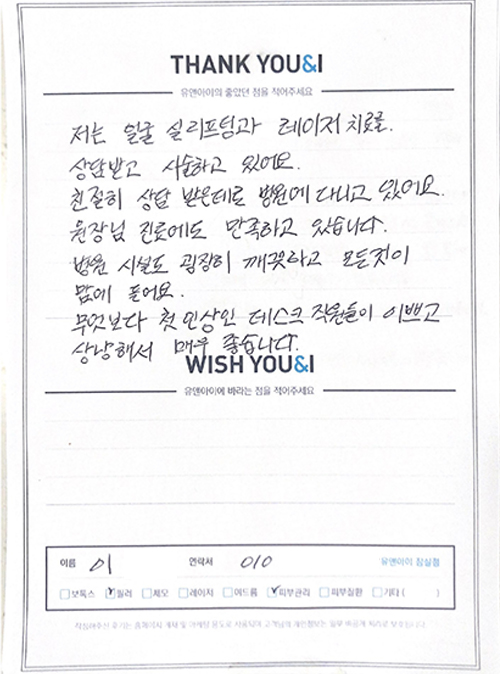 THANK YOU&I
유앤아이의 좋았던 점을 적어주세요
저는 얼굴 실리프팅과 레이저 치료를.
상담받고 시술하고 있어요.
친절히 상담 받은데로 병원에 다니고 있어요.
원장님 진료에도 만족하고 있습니다.
병원 시설도 굉장히 깨끗하고 모든것이
맘에 들어요.
무엇보다 첫인상인 데스크 직원들이 이쁘고
상냥해서 매우 좋습니다.
WISH YOU&I
유앤아이에 바라는 점을 적어주세요
이름 이 연락처 010 유앤아이 잠실점
보톡스 필러 제모 레이저 여드름 피부관리 피부질환 기타 ( )